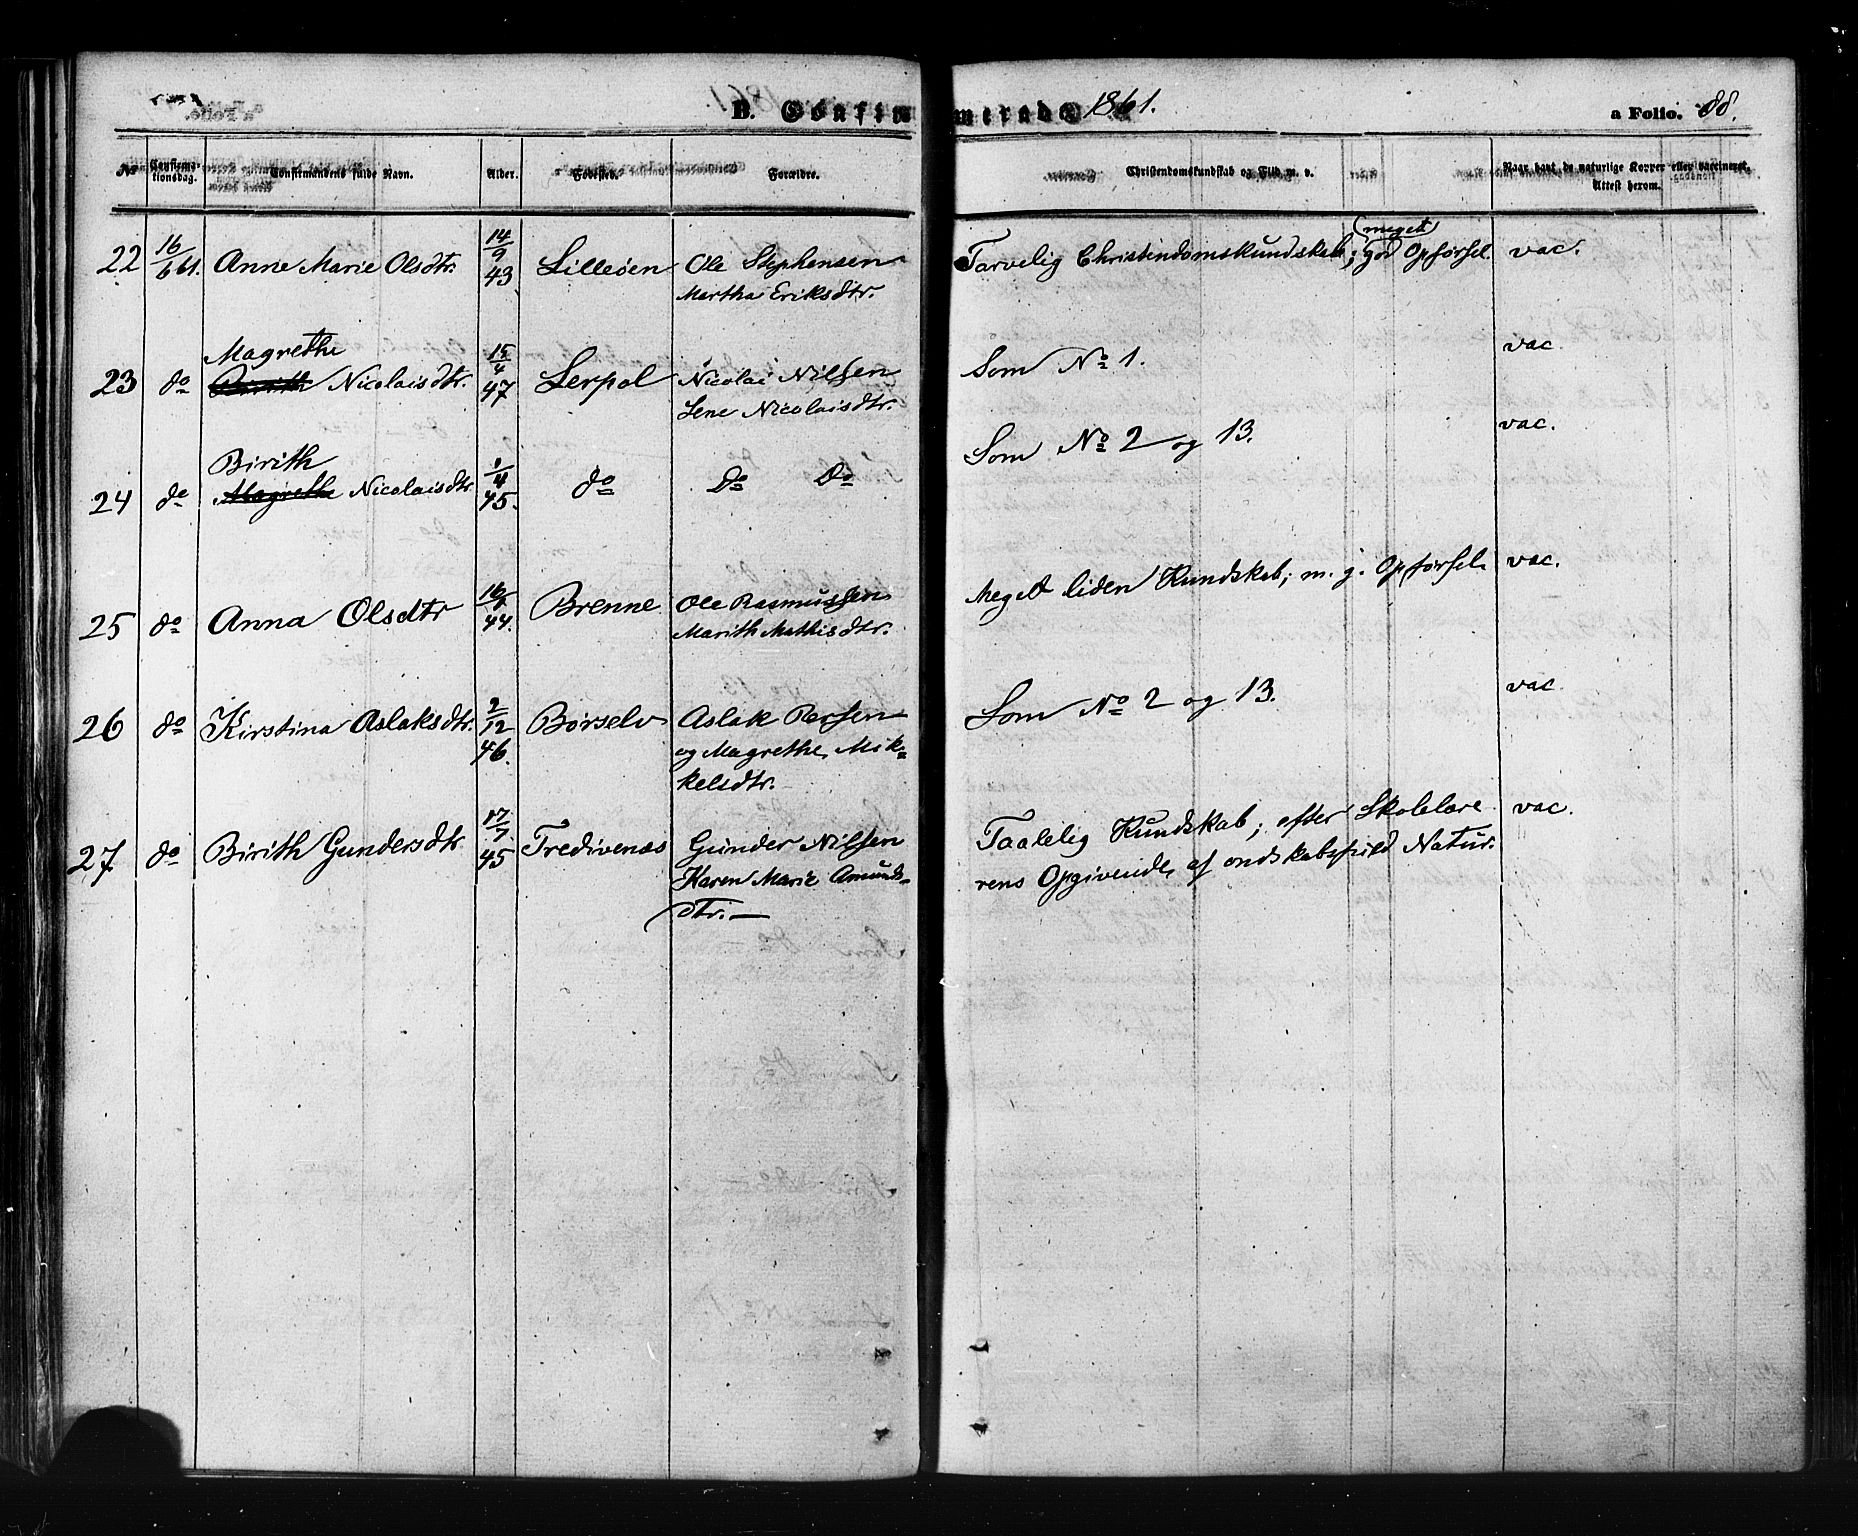 B. Confirmerede 1861. a Folio. 88.
No Confirmationsdag. Confirmandens fulde Navn. Alder. Fødested. Forældre. Christendomskundskab og Flid m. v. Naar havt de naturlige Kopper eller vaccineret, Attest herom.
22 16/6 61. Anne Marie Olsdtr. 14/9 43 Lilleöen Ole Stephensen
Martha Eriksdtr. Tarvelig Christendomskundskab; meget god Opførsel. vac.
23 do Magrethe
Birith Nicolaisdtr. 15/4 47 Lerpol Nicolai Nilsen
Lene Nicolaisdtr. Som No 1. vac.
24 do Birith
Magrethe Nicolaisdtr 1/4 45. do Do Do Som No 2 og 13. vac.
25 do Anna Olsdtr 44. Brenne Ole Rasmussen
Marith Mathisdtr. Meget liden Kundskab; m. g. Opførsel. vac.
26 do Kirstina Aslaksdtr. 2/12 46. Börselv Aslak Persen
og Magrethe Mik=
kelsdtr. Som No 2 og 13. vac.
27 do Birith Gundersdtr 17/7 45 Tredivenæs Gunder Nilsen
Karen Marie Amunds-
dtr. — Taalelig Kundskab; efter Skolelære
rens Opgivende, af ondskabsfuld Natur. vac.